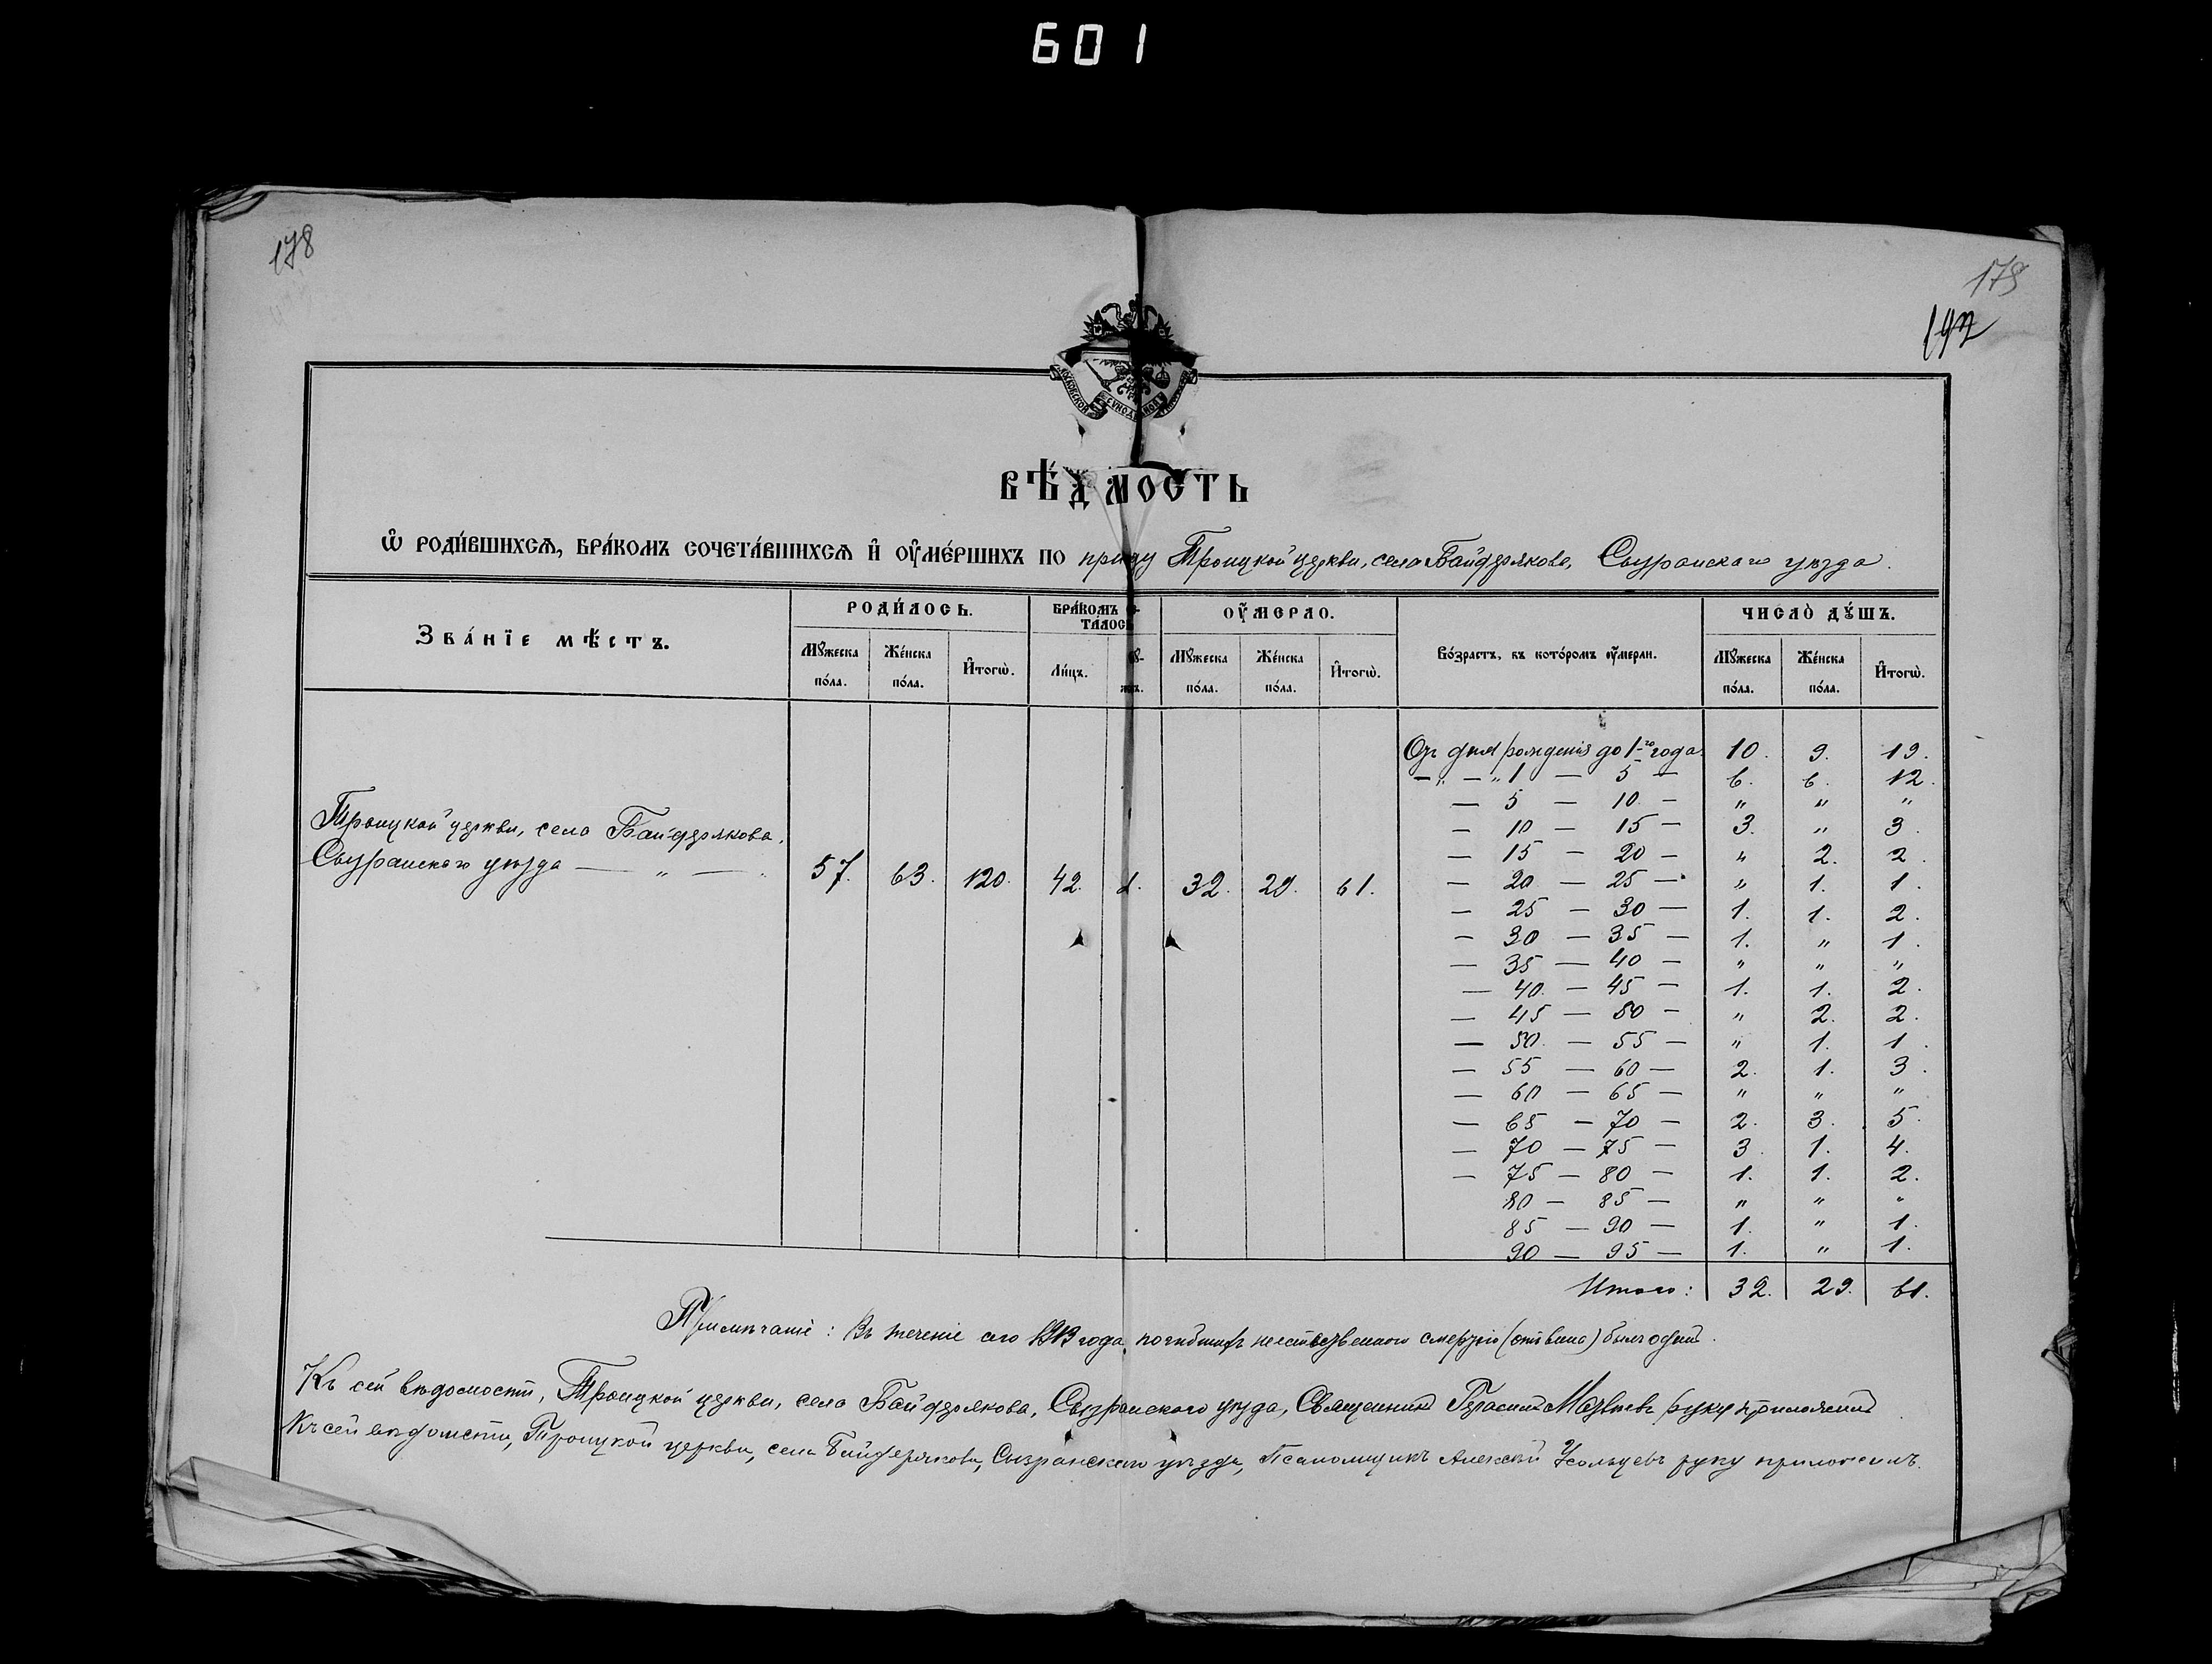 601
178
179
192
ВѢДОМОСТЬ
Ѡ РОДИ́ВШИХСѦ, БРА́КОМЪ СОЧЕТА́ВШИХСѦ И҆ ОУ҆МЕ́РШИХЪ ПО приходу Троицкой церкви, села Байдерякова, Сызранскаго уѣзда.
Зва́нїе мѣ́стъ. РОДИ́ЛОСЬ. БРА́КОМЪ ОУ҆́МЕРЛО. Во́зрастъ, въ кото́ромъ оу҆́мерли. ЧИСЛО̀ ДѸ́ШЪ.
Мꙋжеска по́ла. Же́нска по́ла. И҆тогѡ̀. Ли́цъ. Мꙋжеска по́ла. Же́нска по́ла. И҆тогѡ̀. Мꙋжеска по́ла. Же́нска по́ла. И҆тогѡ̀.
Троицкой церкви, села Байдерякова,
Сызранскаго уѣзда — „ — . 57. 63. 120. 42. 32. 29. 61.
Отъ дня рожденія до 1-го года. 10. 9. 19.
— „ — „ 1 — 5 — 6. 6. 12.
— 5 — 10 — „ „ „
— 10 — 15 — 3. „ 3.
— 15 — 20 — „ 2. 2.
— 20 — 25 — „ 1. 1.
— 25 — 30 — 1. 1. 2.
— 30 — 35 — 1. „ 1.
— 35 — 40 — „ „ „
— 40. — 45 — 1. 1. 2.
— 45 — 50 — „ 2. 2.
— 50. — 55 — „ 1. 1.
— 55 — 60 — 2. 1. 3.
— 60 — 65 — „ „ „
— 65 — 70 — 2. 3. 5.
— 70 — 75 — 3. 1. 4.
— 75 — 80 — 1. 1. 2.
80 — 85 — „ „ „
85 — 90 — 1. „ 1.
90 — 95 — 1. „ 1.
Итого: 32. 29. 61.
Примѣчаніе: Въ теченіе сего 1913 года погибшихъ неестественною смертію (отъ вина) былъ одинъ.
Къ сей вѣдомости, Троицкой церкви, села Байдерякова, Сызранскаго уѣзда, Священникъ Герасимъ руку приложилъ.
Къ сей вѣдомости, Троицкой церкви, села Байдерякова, Сызранскаго уѣзда, Псаломщикъ Алексѣй Усольцевъ руку приложилъ.